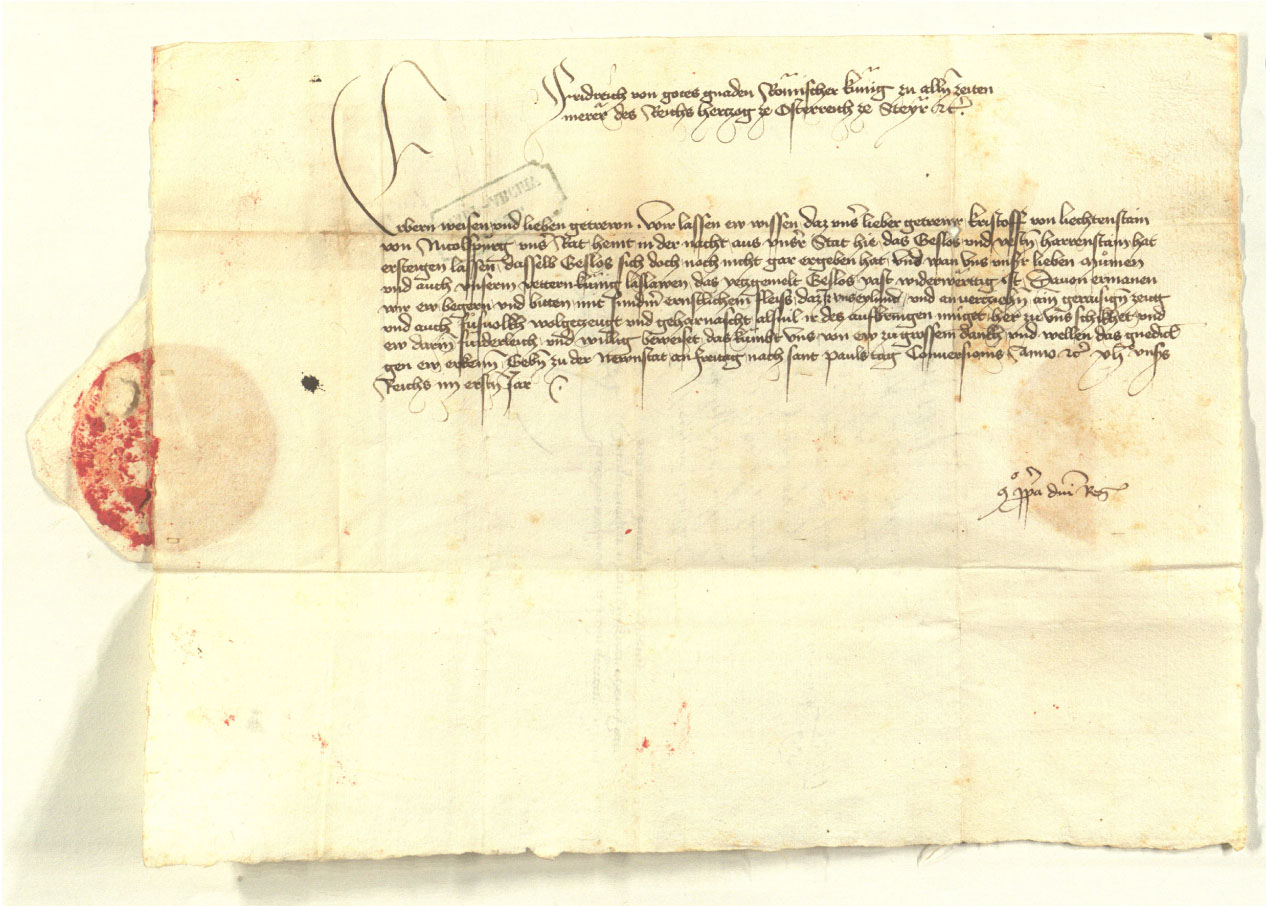 Fridreich von gotes gnaden Römischer künig zu alln zeiten
merer des Reichs hertzog ze Österreich ze Steyr etc.
Erbern weisen und lieben getrewn. Wir lassen ew wissen daz unser lieber getrewr Kristoff von Liechtenstain
von Nicolspurg unser Rat heint in der nacht aus unsrer Stat hie das Geslos und vestn harrenstain hat
ersteigen lassen, dasselb Geslos sich doch noch nicht gar ergeben hat, und wan uns unsrer lieben Mŭmen
und auch unserm vettern künig laslawen, das yetzgemelt Geslos vast widerwërtig ist, Davon ermanen
wir ew begern und bitten mit sundrm ernstlichem fleiss, daz ir unverziehn ain geraisign zeug
und auch fusvolkh wolgetzeugt und geharnascht alsuil ir des aufbringen müget, her zu uns schikhet und
ew darin fürderleich und willig beweiset, das kümbt uns von ew zu grossem dankh, und wellen das gnedicl
gen ew erkenn, Gebn zu der Newnstat an freitag nach sant pauls tag Conversionis Anno etc xli unsers
Reichs im erstn Jar
C p dni Reg